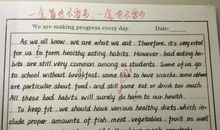 一个单词也不出多，一个也不能少
We are making progress every day. Date:
As we all know, we are what we eat. Therefore, it's very vital
for us to form healthy eating habits. However, bad eating ha-
bits are still very common among us students. Some of us go
to school without breakfast, some like to have snacks, some others
are particular about food, and still some eat or drink too much.
All these bad habits will surely do harm to our health.
To keep fit, we should have various healthy diets, which in-
clude proper amounts of fish, meat, vegetables, fruit as well